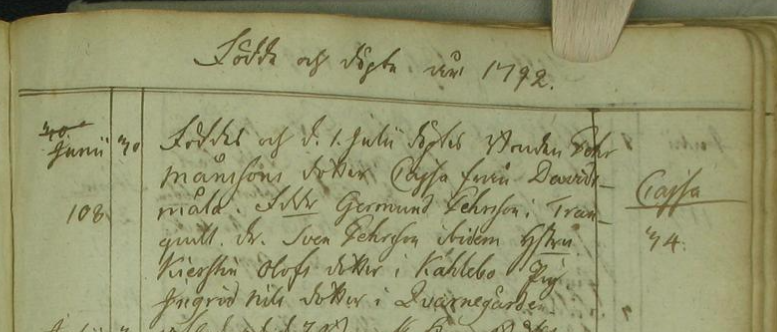 Födde och döpte år 1792.
30
Junii 30 Föddes och d. 1. Julii döptes Bonden Pehr
Månssons dotter Cajsa från Davids- Cajsa
måla. Fadder Germund Pehrsson i Tran-
108. 34.
quill. Dr. Sven Pehrsson ibidem Hustru
Kierstin Olofs dotter i Kåhlebo Pig.
Ingrid Nils dotter i Qvarnegården